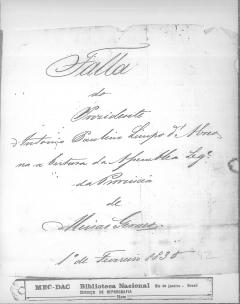 Falla
do
Prezidente
Antonio Paulino Limpo d'Abreo
na abertura da Assemblea Leg.
da Provincia
de
Minas Geraes
1º de Fevereiro 1835
MEC-DAC Biblioteca Nacional Rio de Janeiro - Brasil
SERVIÇO DE REPROGRAFIA